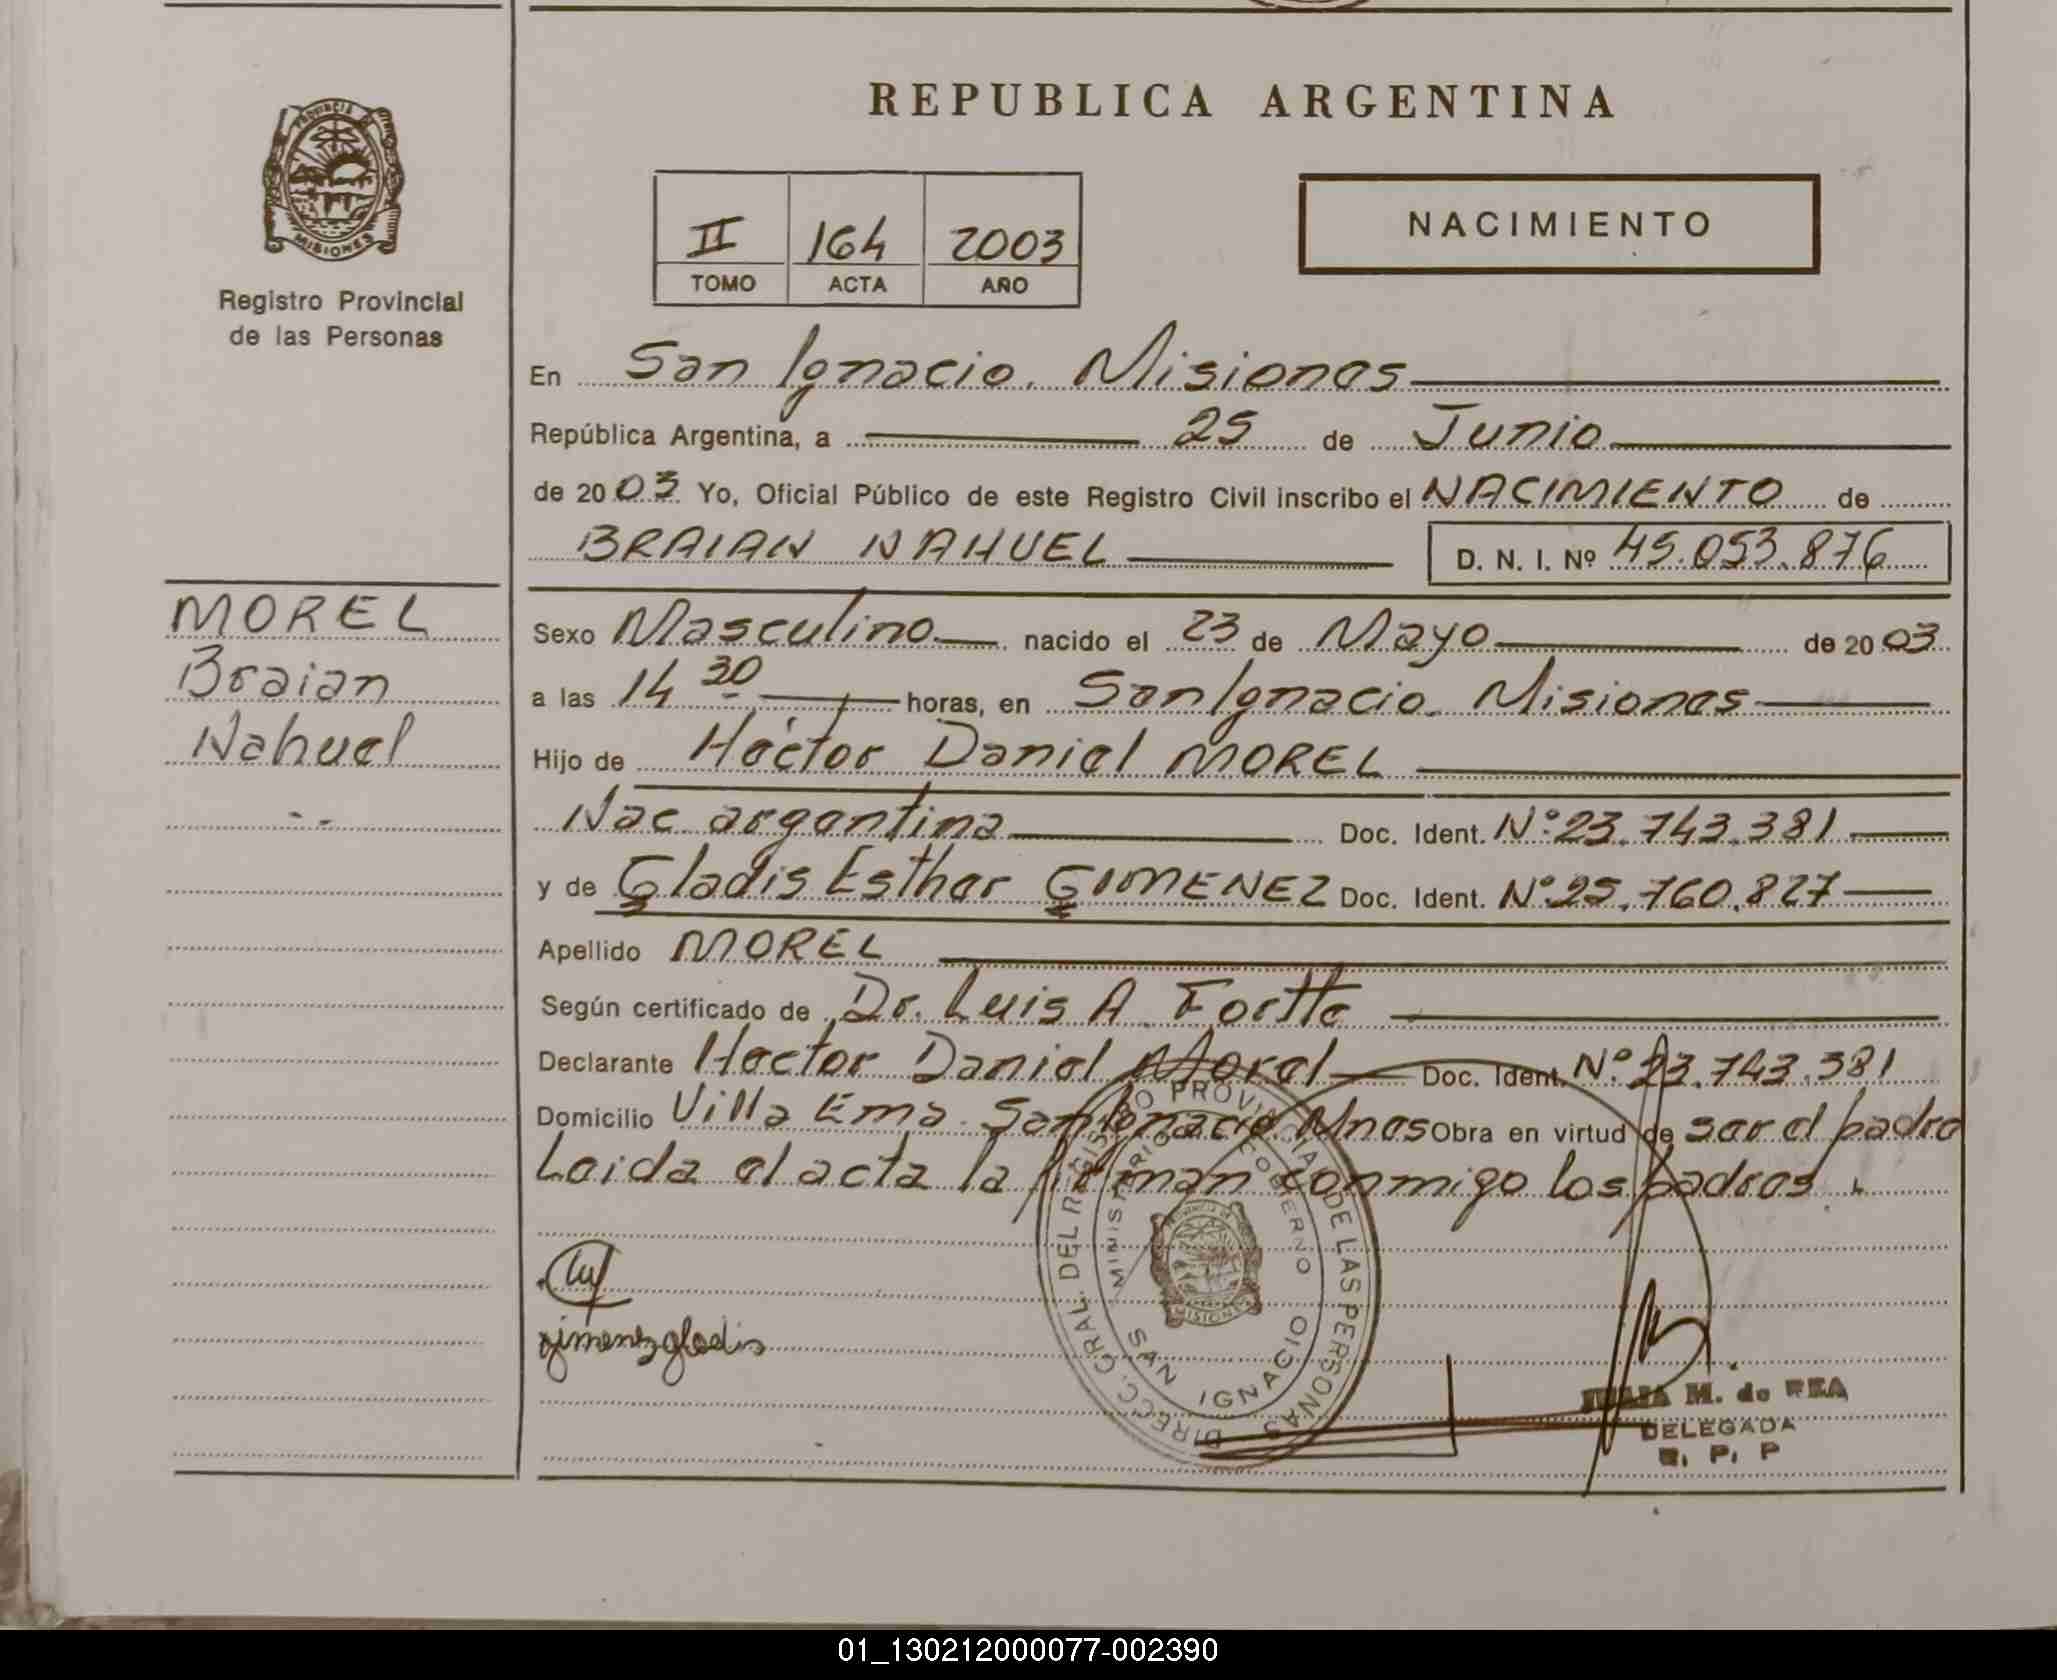 REPUBLICA ARGENTINA
PROVINCIA DE
MISIONES
Registro Provincial
de las Personas
II 164 2003
TOMO ACTA AÑO
NACIMIENTO
En San Ignacio. Misiones
República Argentina, a 25 de Junio
de 2003 Yo, Oficial Público de este Registro Civil inscribo el NACIMIENTO de
BRAIAN NAHUEL D. N. I. Nº 45.053.876
MOREL
Braian
Nahuel
Sexo Masculino nacido el 23 de Mayo de 2003
a las 14 30 horas, en San Ignacio. Misiones
Hijo de Héctor Daniel MOREL
Nac argentina Doc. Ident. Nº 23.743.381
y de Gladis Esther GIMENEZ Doc. Ident. Nº 25.760.827
Apellido MOREL
Según certificado de Dr. Luis A.
Declarante Hector Daniel Morel Doc. Ident. Nº 23.743.381
Domicilio Villa Ema San Ignacio Mnes Obra en virtud de ser el padre
Leida el acta la firman conmigo los padres.
DIRECC. GRAL. DEL REGISTRO PROVINCIAL DE LAS PERSONAS
MINISTERIO GOBIERNO
PROVINCIA DE
MISIONES
SAN IGNACIO
gimenez gladis
M. de REA
DELEGADA
R. P. P
01_130212000077-002390